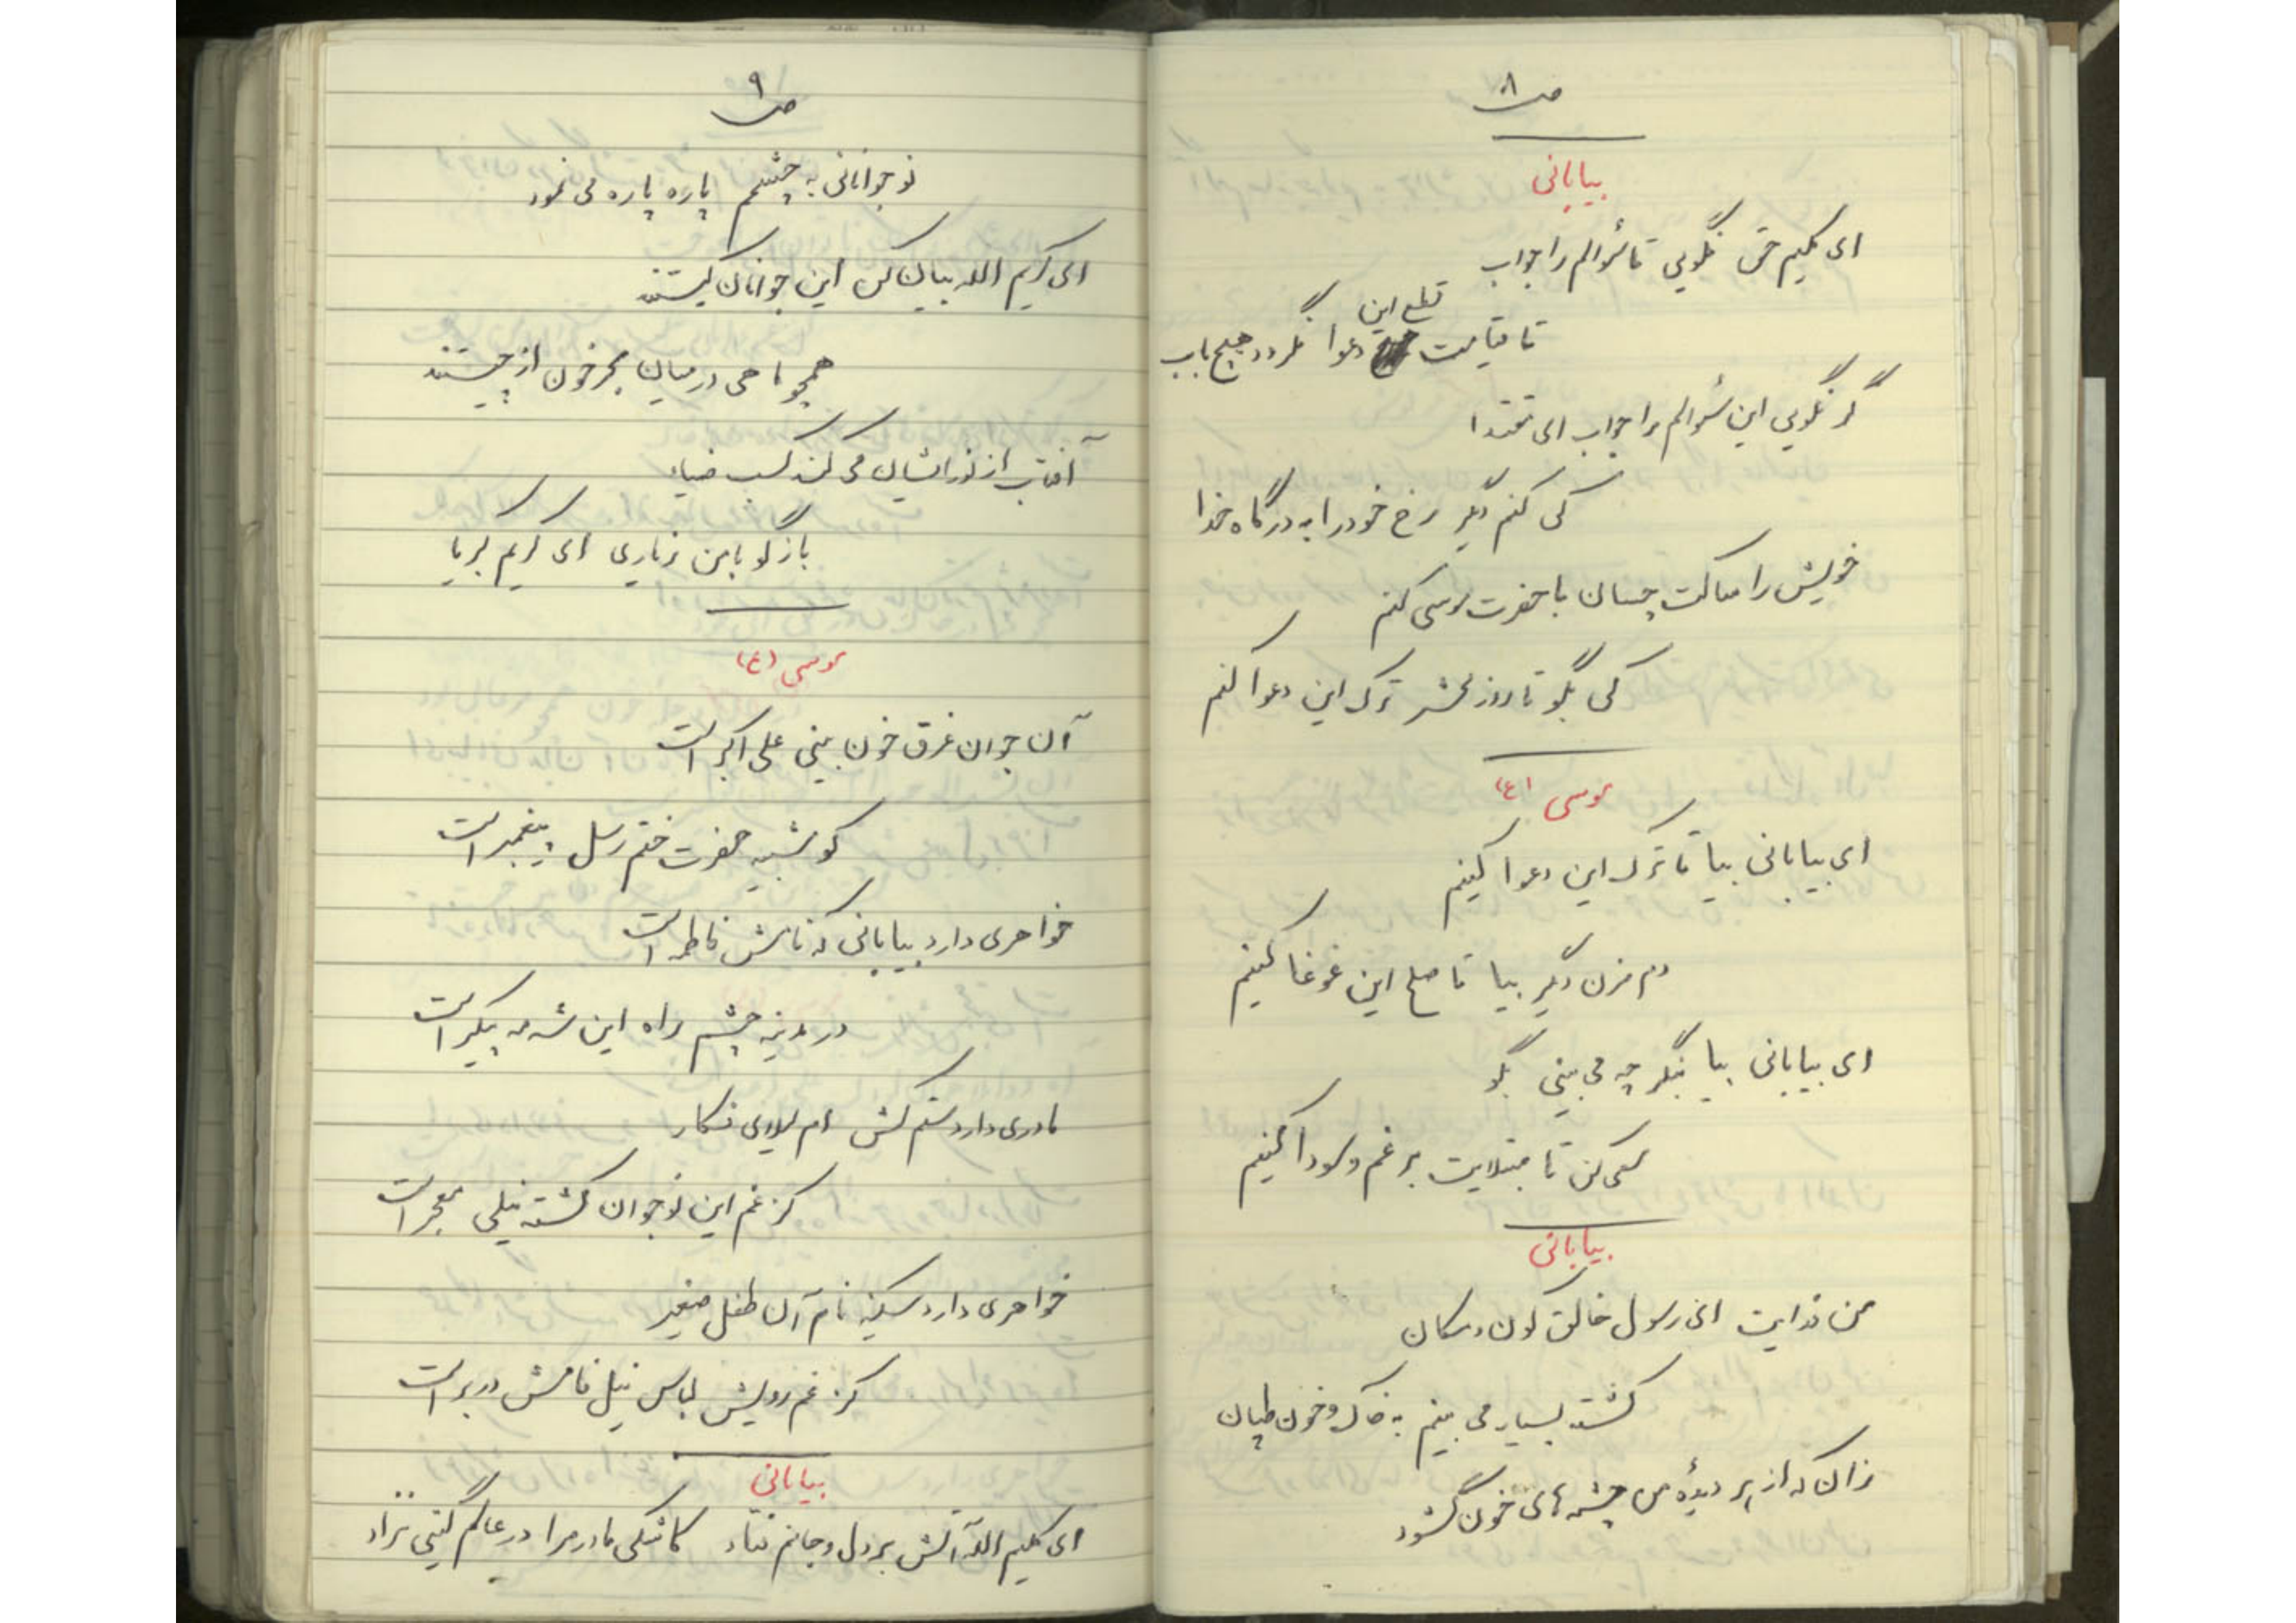 ص ۸
بیابانی
ای کلیم حق نگویی تا سؤالم را جواب
قطع این
تا قیامت دعوا نگردد هیچ باب
گر نگویی این سؤالم را جواب ای مقتدا
کی کنم دیگر رخ خود را به درگاه خدا
خویش را ساکت چسان با حضرت موسی کنم
کی بگو تا روز محشر ترک این دعوا کنم
موسی (ع)
ای بیابانی بیا تا ترک این دعوا کنیم
دم مزن دیگر بیا تا صلح این غوغا کنیم
ای بیابانی بیا بنگر چه می بینی بگو
سعی کن تا مبتلایت بر غم و سودا کنیم
بیابانی
من فدایت ای رسول خالق کون و مکان
کشته بسیار می بینم به خاک و خون طپان
زان که از بر دیدهٔ من چشمه های خون گشود
ص ۹
نوجوانانی به چشمم پاره پاره می نمود
ای کریم الله بیان کن این جوانان کیستند
همچو ماهی در میان بحر خون از چیستند
آفتاب از نورایشان می کند کسب ضیاء
بازگو با من ز یاری ای کریم کبریا
موسی (ع)
آن جوان غرق خون بینی علی اکبر است
کو شبیه حضرت ختم رسل پیغمبر است
خواهری دارد بیابانی که نامش فاطمه است
در مدینه چشم راه این شه مه پیکر است
مادری دارد ستم کش ام لیلای فکار
کز غم این نوجوان گشته نیلی معجر است
خواهری دارد سکینه نام آن طفل صغیر
کز غم رویش لباس نیل فامش در بر است
بیابانی
ای کلیم الله آتش بر دل و جانم فتاد کاشکی مادر مرا در عالم گیتی نزاد